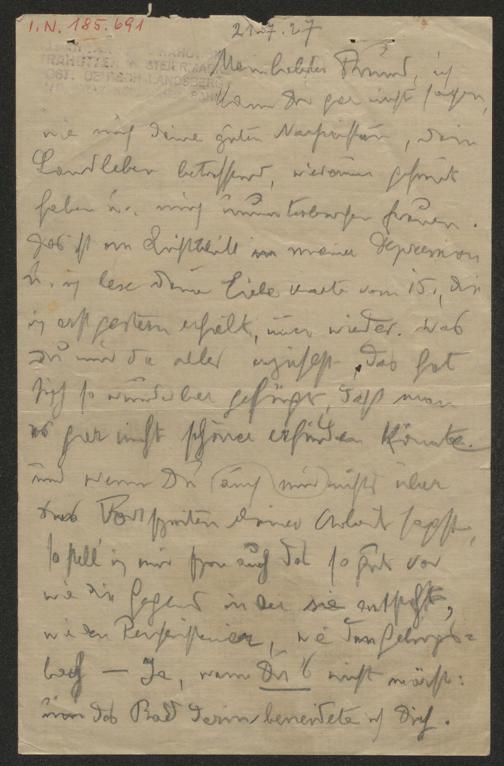 I.N. 185.691
21.7.27
Mein liebster Freund, ich
kann Dir gar nicht sagen,
wie mich deine guten Nachrichten, dein
Landleben betreffend, wiederum gefreut
haben u. mich immer freuen.
Das ist ein Lichtblick in meiner Depression
u. ich lese deine liebe Karte vom 15., die
ich erst gestern erhielt, immer wieder. Was
Du mir da alles, das hat
sich so wunderbar gefügt, daß man
es gar nicht schöner erfinden könnte.
und wenn Du auch mir nichts über
das Fortschreiten deiner Arbeit sagst,
so stell ich mir auch das so gut vor
wie die Gegend in der sie entsteht,
wie den, wie den Gebirgs-
bach — Ja, wenn Du's nicht wärst:
um das Bad darin beneidete ich Dich.